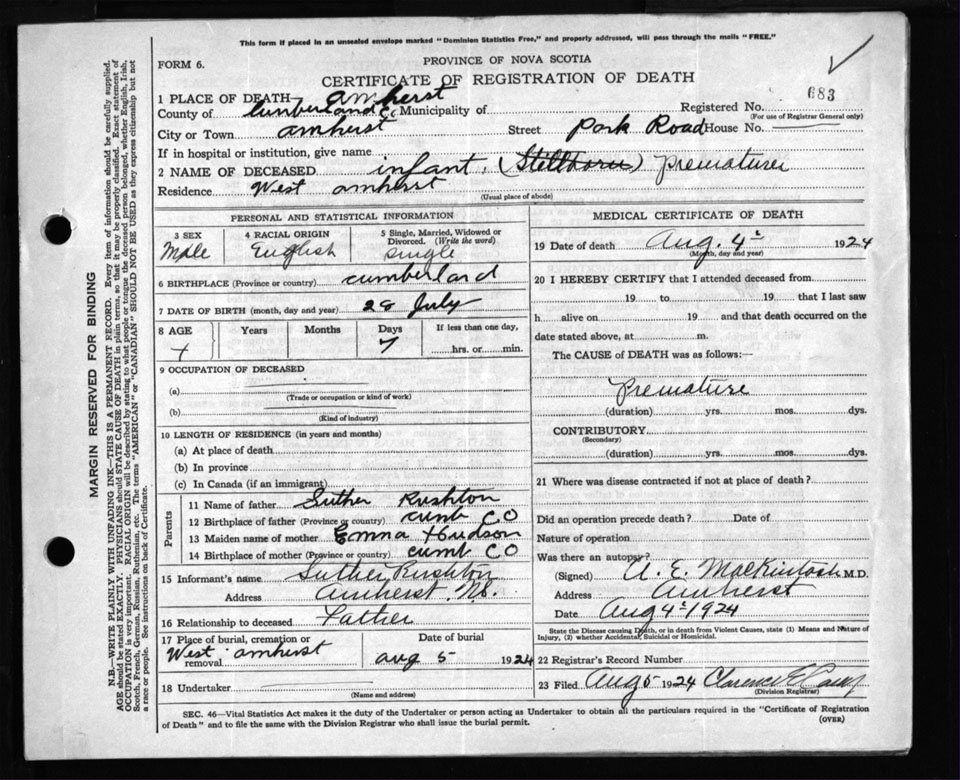 This form if placed in an unsealed envelope marked "Dominion Statistics Free," and properly addressed, will pass through the mails "FREE."
FORM 6.
PROVINCE OF NOVA SCOTIA
CERTIFICATE OF REGISTRATION OF DEATH
683
1 PLACE OF DEATH— Amherst
County of Cumberland Co Municipality of Registered No.
(For use of Registrar General only)
City or Town amherst Street Park Road House No.
If in hospital or institution, give name
2 NAME OF DECEASED infant. (Stillborn) premature
Residence West amherst
(Usual place of abode)
PERSONAL AND STATISTICAL INFORMATION
3 SEX 4 RACIAL ORIGIN 5 Single, Married, Widowed or Divorced. (Write the word)
Male English single
6 BIRTHPLACE (Province or country) cumberland
7 DATE OF BIRTH (month, day and year) 28 July
8 AGE Years Months Days If less than one day,
7 hrs. or min.
9 OCCUPATION OF DECEASED
(a)
(Trade or occupation or kind of work)
(b)
(Kind of industry)
10 LENGTH OF RESIDENCE (in years and months)
(a) At place of death
(b) In province
(c) In Canada (if an immigrant)
Parents
11 Name of father Suther Rushton
12 Birthplace of father (Province or country) cumb CO
13 Maiden name of mother Emma Hudson
14 Birthplace of mother (Province or country) cumb CO
15 Informant's name Suther Rushton
Address Amherst, N.S.
16 Relationship to deceased Father
17 Place of burial, cremation or removal Date of burial
West amherst aug 5 1924
18 Undertaker
(Name and address)
MEDICAL CERTIFICATE OF DEATH
19 Date of death Aug. 4 1924
(Month, day and year)
20 I HEREBY CERTIFY that I attended deceased from
19 to 19 that I last saw
h alive on 19 and that death occurred on the
date stated above, at m.
The CAUSE of DEATH was as follows:—
Premature
(duration) yrs. mos. dys.
CONTRIBUTORY
(Secondary)
(duration) yrs. mos. dys.
21 Where was disease contracted if not at place of death?
Did an operation precede death? Date of
Nature of operation
Was there an autopsy?
(Signed) A. E. Mackintosh M.D.
Address Amherst
Date Aug 4 1924
State the Disease causing Death, or in death from Violent Causes, state (1) Means and Nature of
Injury, (2) whether Accidental, Suicidal or Homicidal.
22 Registrar's Record Number
23 Filed Aug 5 1924 Clarence E
(Division Registrar)
SEC. 46—Vital Statistics Act makes it the duty of the Undertaker or person acting as Undertaker to obtain all the particulars required in the "Certificate of Registration
of Death" and to file the same with the Division Registrar who shall issue the burial permit.
(OVER)
MARGIN RESERVED FOR BINDING
N.B.—WRITE PLAINLY WITH UNFADING INK—THIS IS A PERMANENT RECORD. Every item of information should be carefully supplied.
AGE should be stated EXACTLY. PHYSICIANS should STATE CAUSE OF DEATH in plain terms, so that it may be properly classified. Exact statement of
OCCUPATION is very important. RACIAL ORIGIN will be described by stating to what people or tongue the deceased person belonged, whether English, Irish,
Scotch, French, German, Russian, Ruthenian, etc. The terms "AMERICAN" or "CANADIAN" SHOULD NOT BE USED as they express citizenship but not
a race or people. See instructions on back of Certificate.